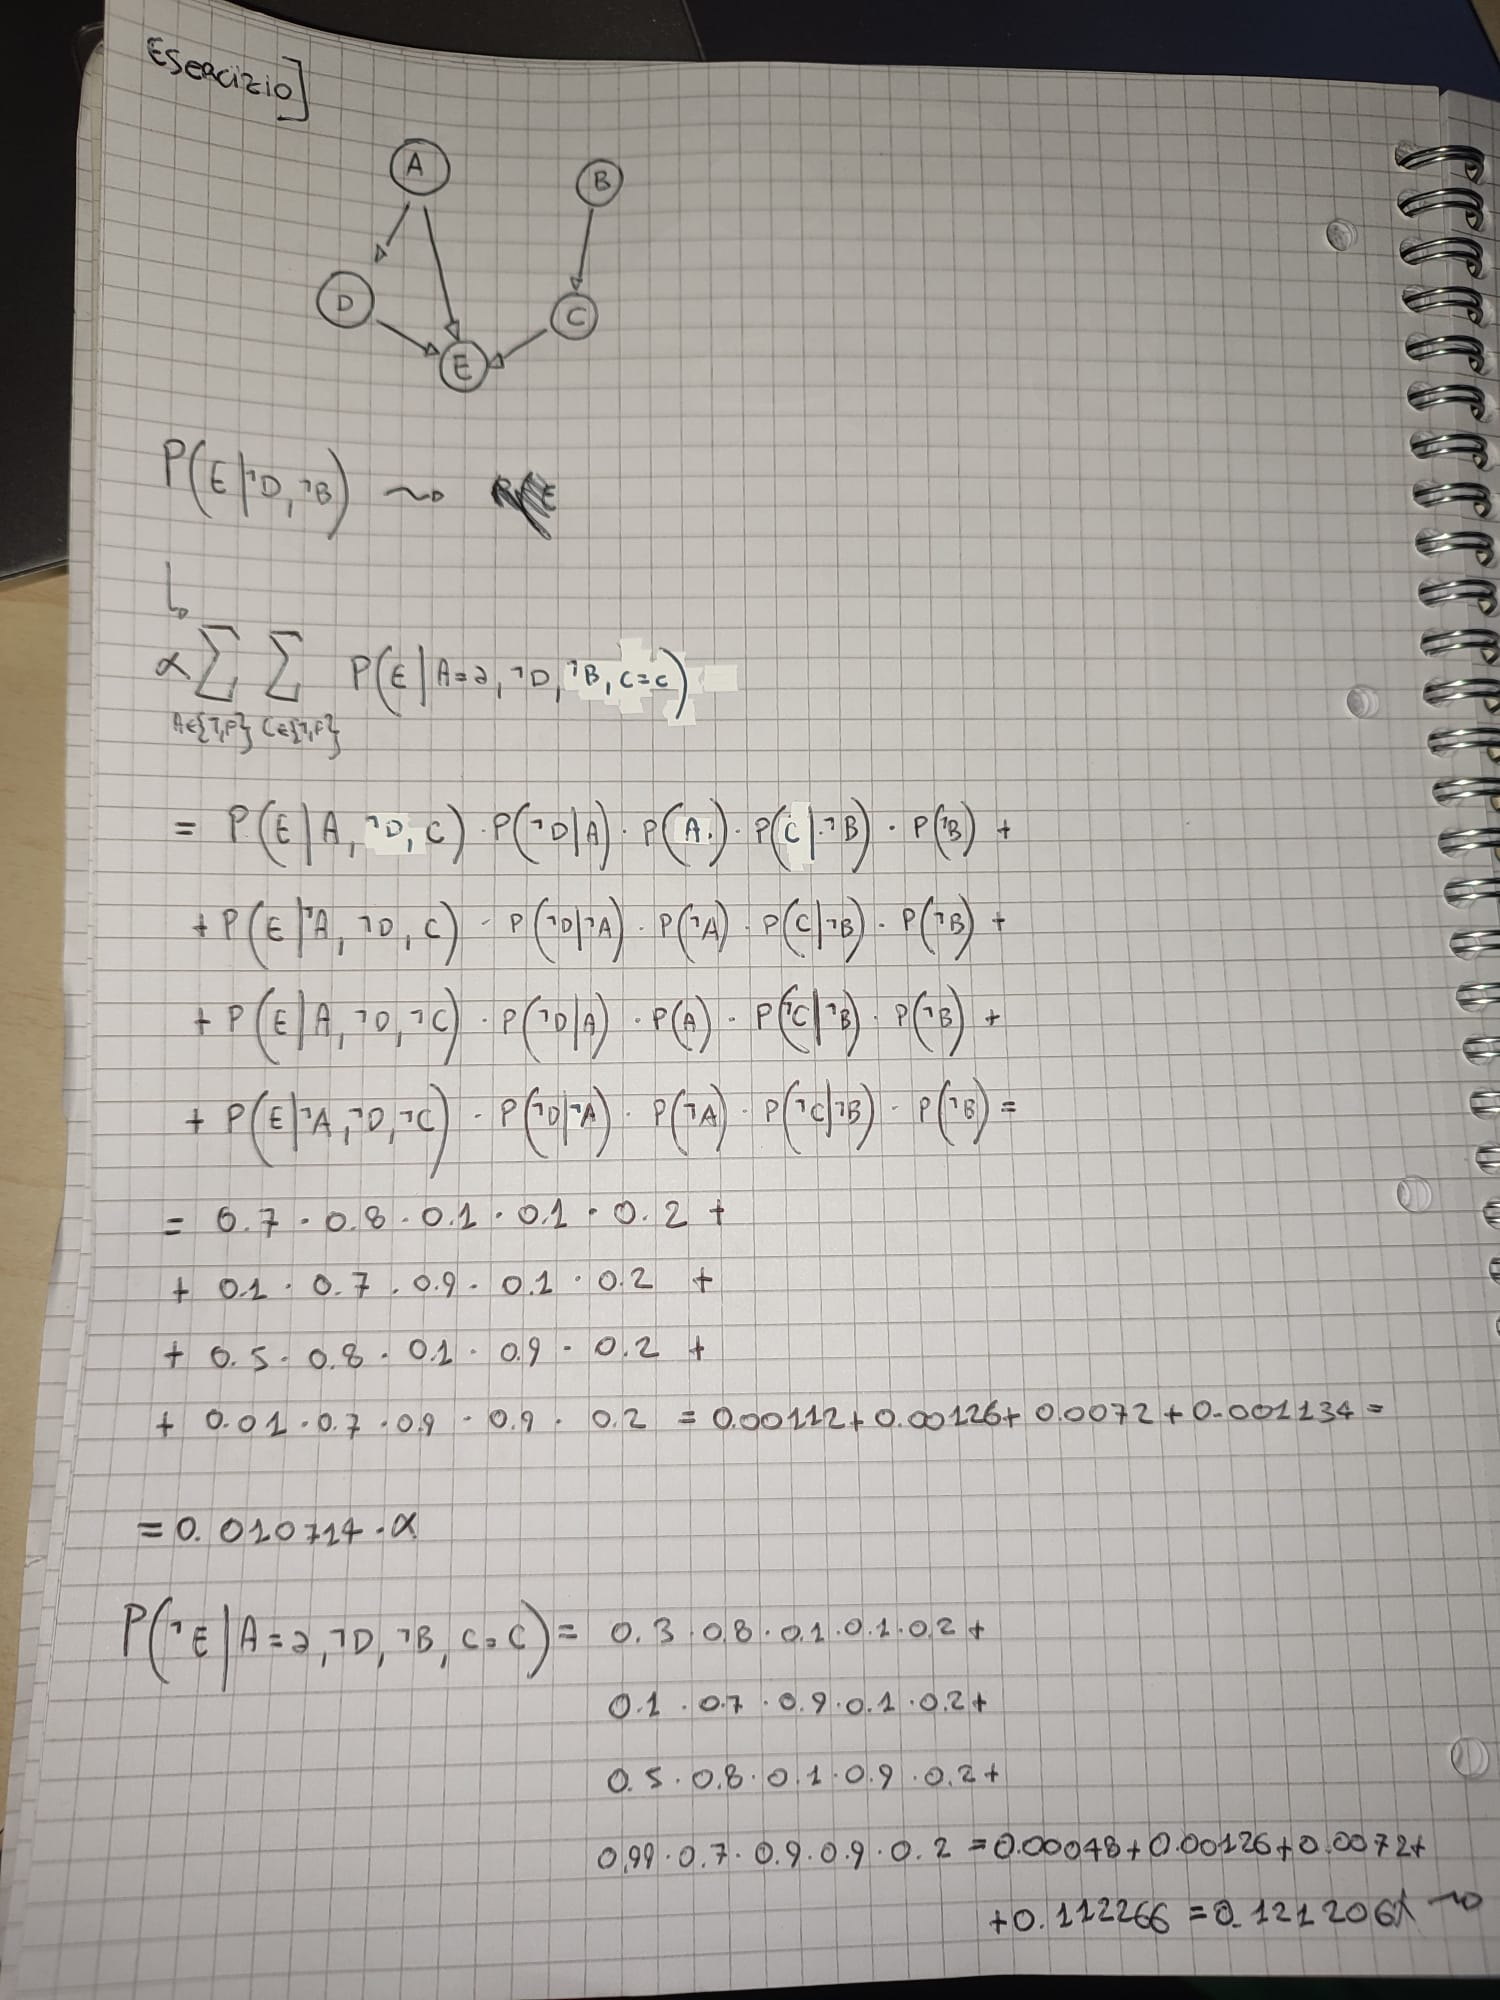 Esercizio]
A
B
D
C
E
P(E|¬D,¬B) ⤳
↳
α∑ ∑ P(E|A=a,¬D,¬B,C=c)
A∈{T,F} C∈{T,F}
= P(E|A,¬D,C)·P(¬D|A)·P(A)·P(C|¬B)·P(¬B)+
+P(E|¬A,¬D,C)·P(¬D|¬A)·P(¬A)·P(C|¬B)·P(¬B)+
+P(E|A,¬D,¬C)·P(¬D|A)·P(A)·P(¬C|¬B)·P(¬B)+
+P(E|¬A,¬D,¬C)·P(¬D|¬A)·P(¬A)·P(¬C|¬B)·P(¬B)=
= 0.7·0.8·0.1·0.1·0.2+
+ 0.1·0.7·0.9·0.1·0.2+
+ 0.5·0.8·0.1·0.9·0.2+
+ 0.01·0.7·0.9·0.9·0.2 = 0.00112+0.00126+0.0072+0.001134=
=0.010714·α
P(¬E|A=a,¬D,¬B,C=C)= 0.3·0.8·0.1·0.1·0.2+
0.1·0.7·0.9·0.1·0.2+
0.5·0.8·0.1·0.9·0.2+
0.99·0.7·0.9·0.9·0.2=0.00048+0.00126+0.0072+
+0.112266=0.121206α ⤳